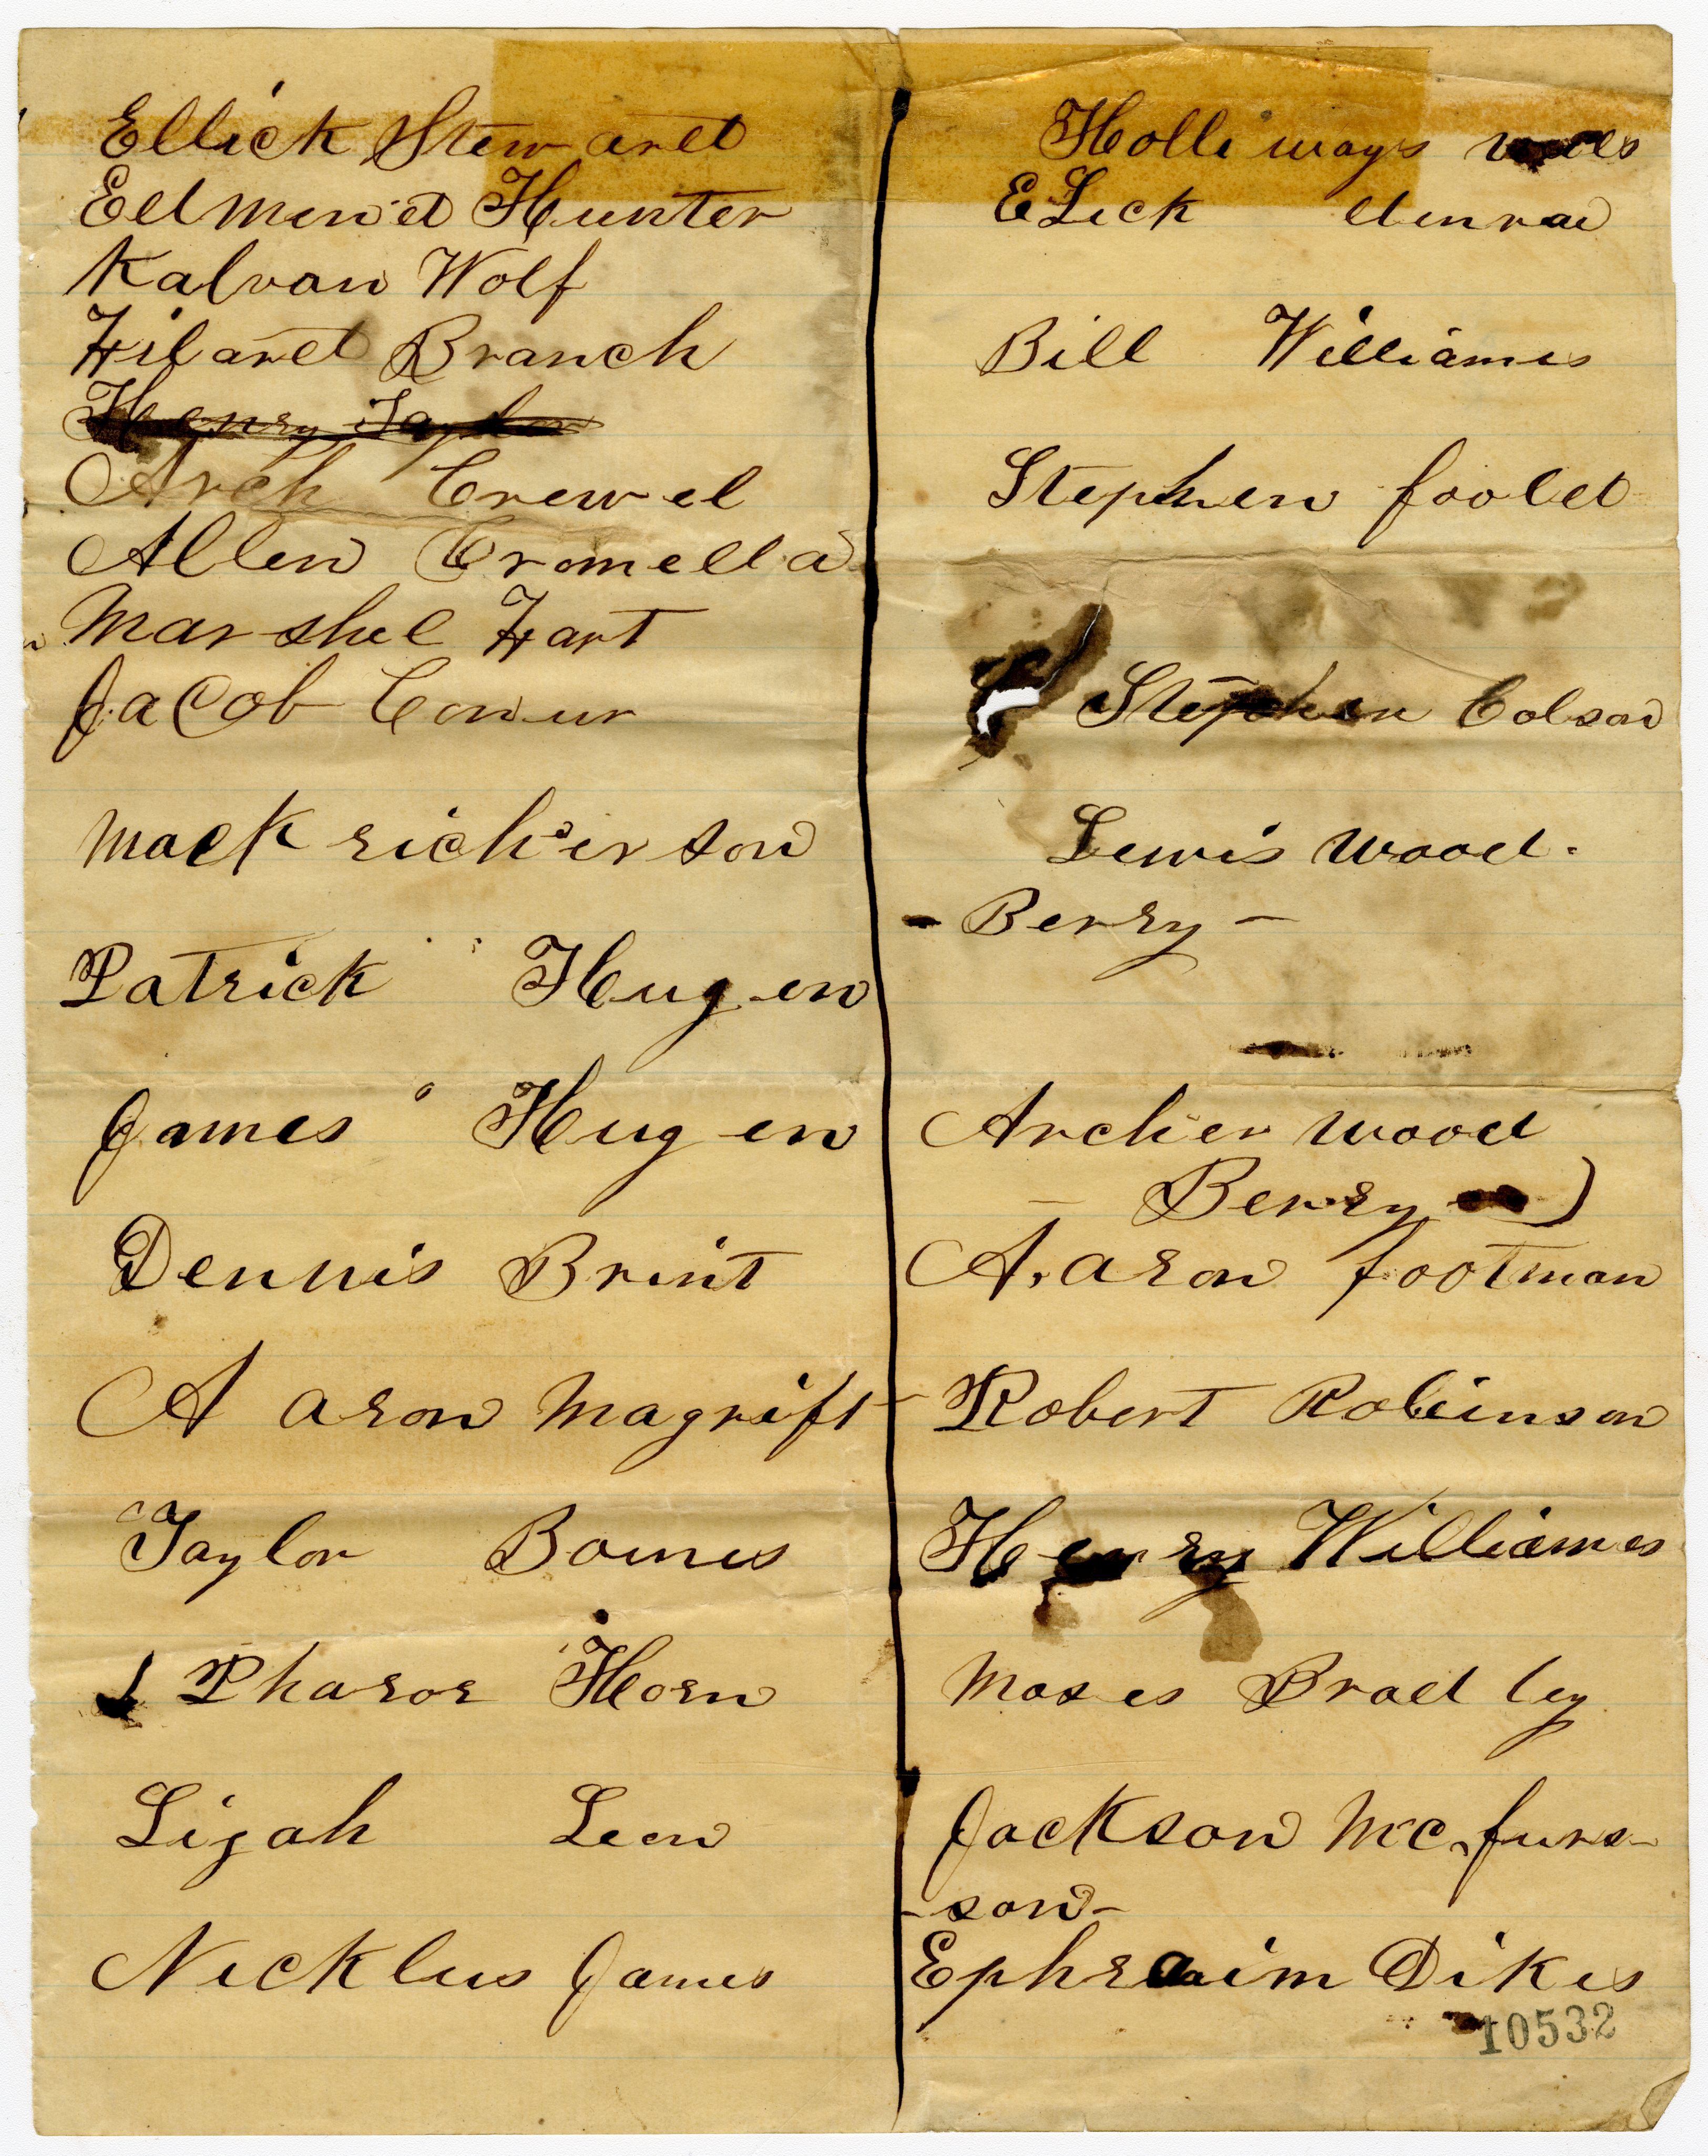 Ellick Stewaret
Edmend Hunter
Kalvan Wolf
Hilard Branch
Henry Taylor
Arch Crewel
Allen Cromella
Marshel Hart
Jacob Conur
Mack richerson
Patrick Hugen
James Hugen
Dennis Brint
A aron Magrift
Taylor Boines
Pharor Horn
Lijah Leon
Nicklus James
Holliways
ELick
Bill Williames
Stephen foold
Stephen Colson
Lewis Wood.
- Berry -
Archer Wood
- Berry )
A. aron footman
Robert Robinson
Henry Williames
Moses Bradley
Jackson Mc furs-
- son -
Ephraim Dikes
10532